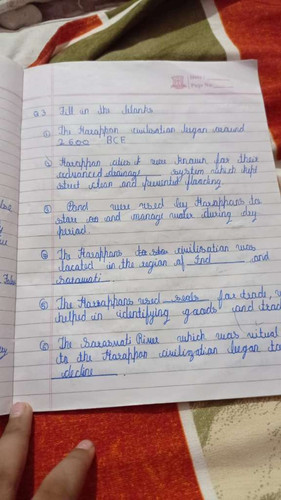 Page No.
Q3 Fill in the blanks
① The Harappan civilisation began around
2600 BCE
② Harappan cities were known for their
advanced drainage system which kept
street clean and prevented flooding.
③ Pond were used by Harappans to
store on and manage water during dry
period.
④ The Harappans civilisation was
located in the region of Ind and
Sarasvati.
⑤ The Harappans used seals for trade,
helped in identifying goods and trad
⑥ The Sarasvati River which was vitual
to the Harappan civilization began to
decline.